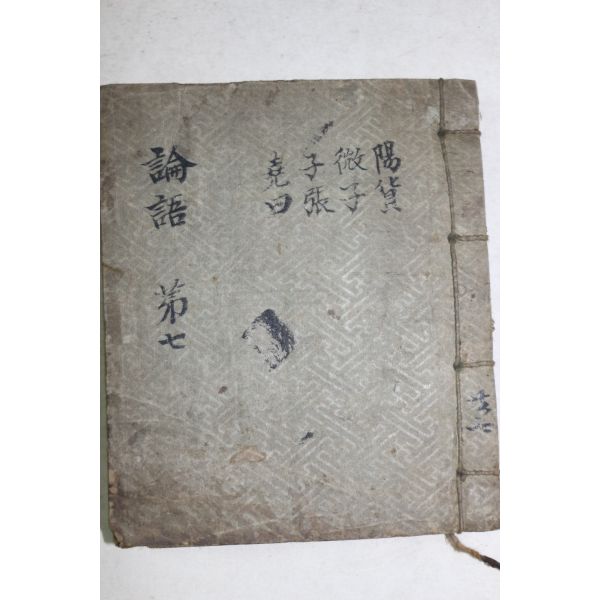 陽貨
微子
子張
堯曰
論語 第七
共七